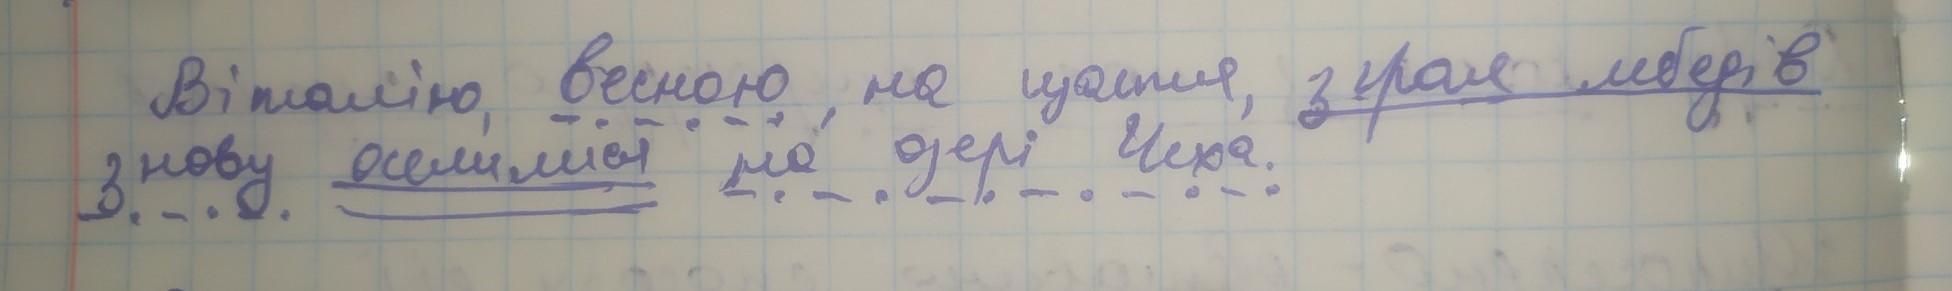 Віталію, весною, на щастя, зграя лебедів
знову оселилися на озері Чеха.